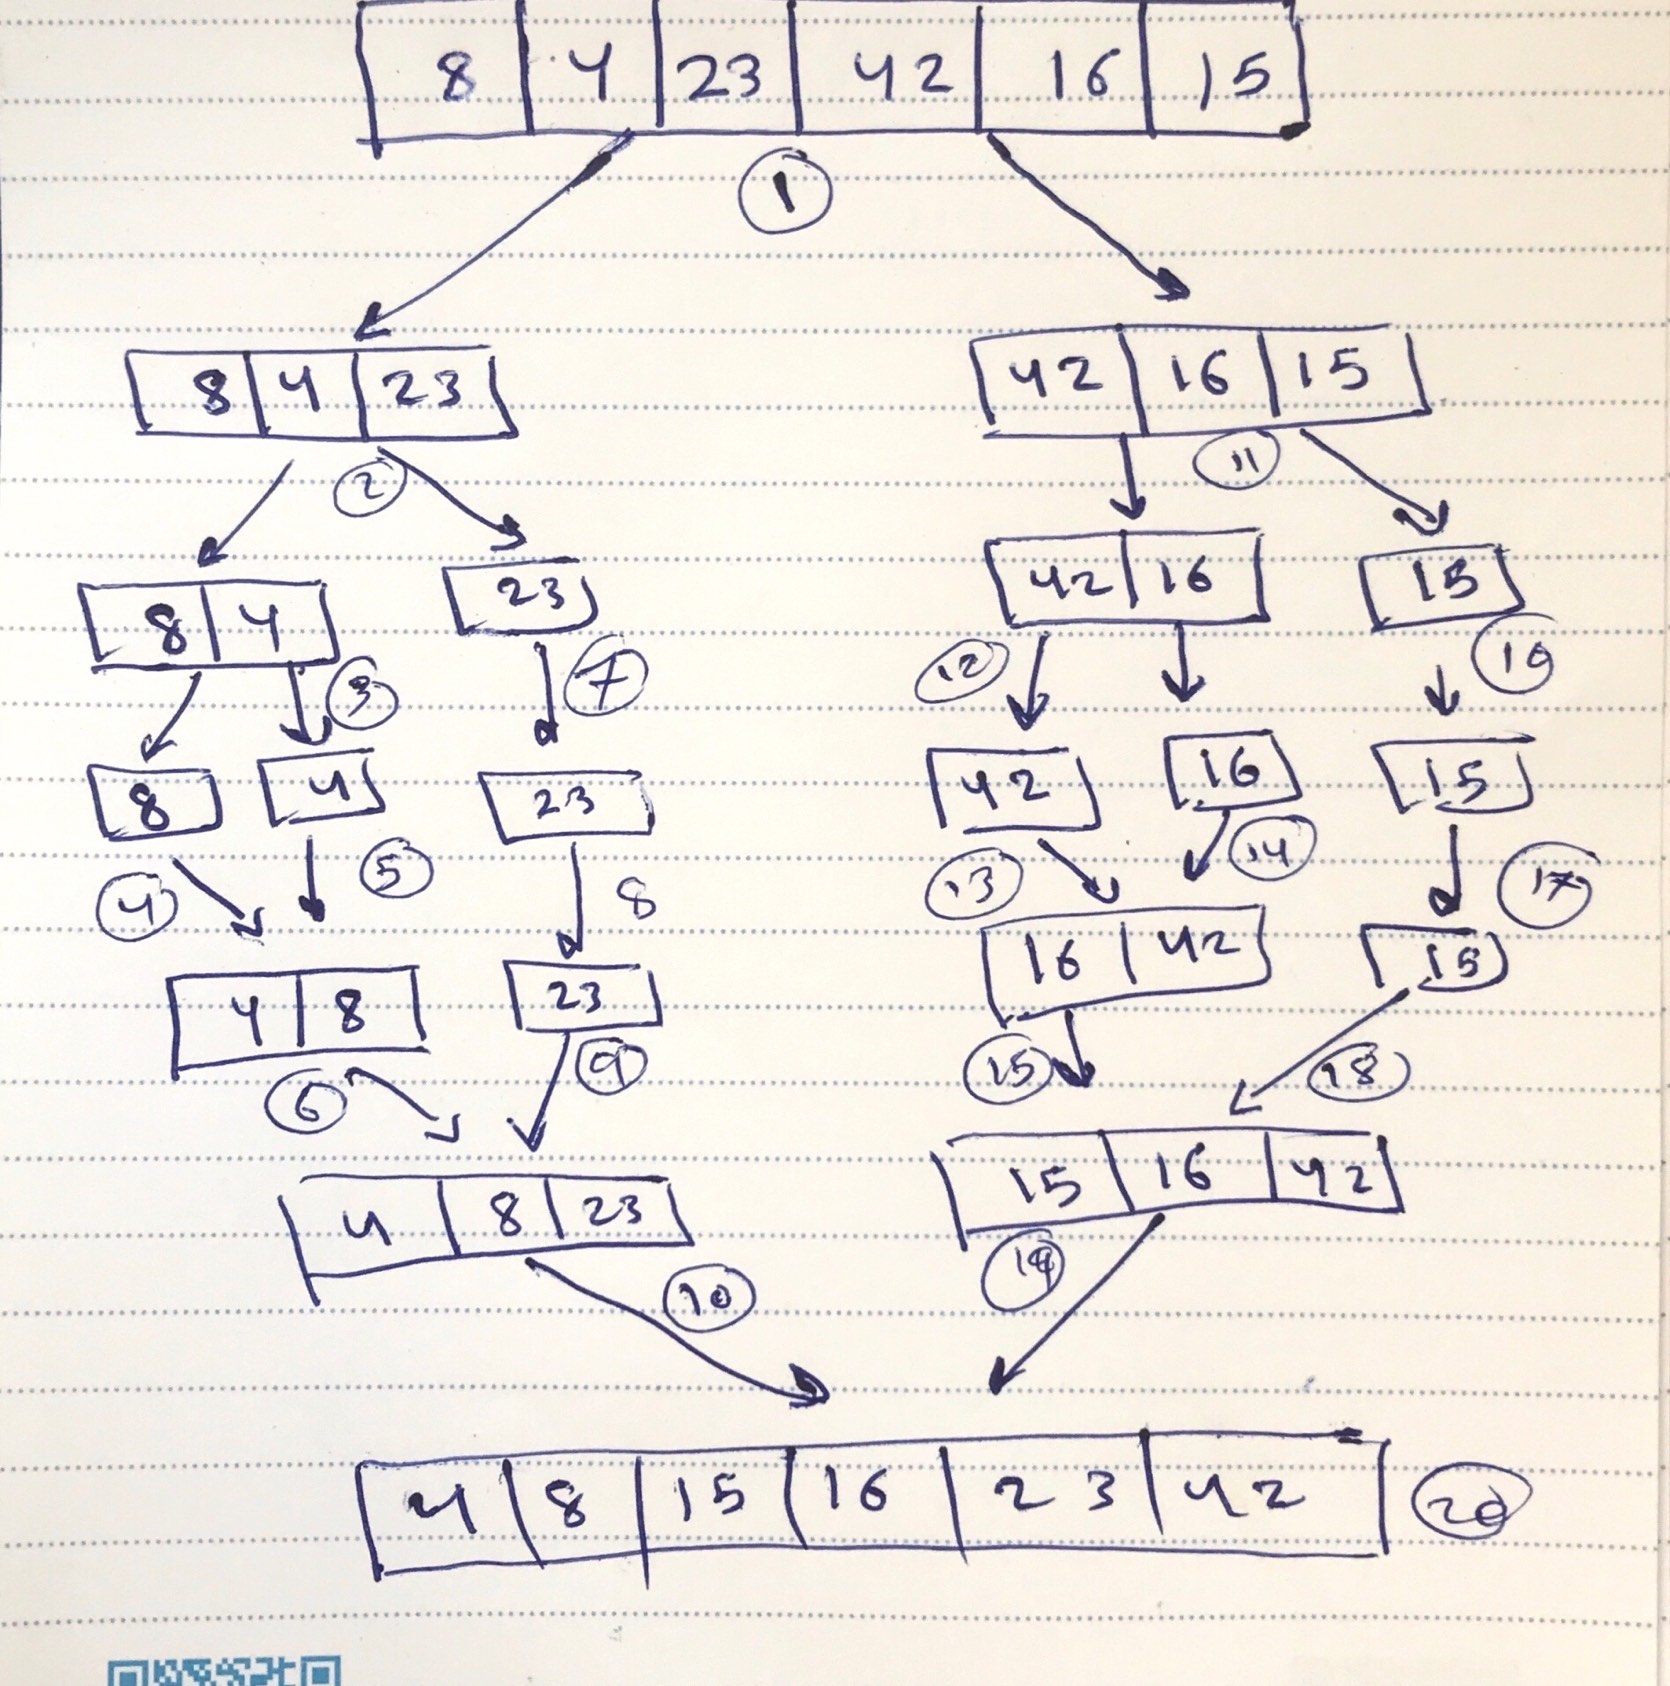 8 4 23 42 16 15
1
8 4 23 42 16 15
2 11
8 4 23 42 16 15
3 7 12 16
8 4 23 42 16 15
4 5 8 13 14 17
4 8 23 16 42 15
6 9 15 18
4 8 23 15 16 42
10 19
4 8 15 16 23 42 20